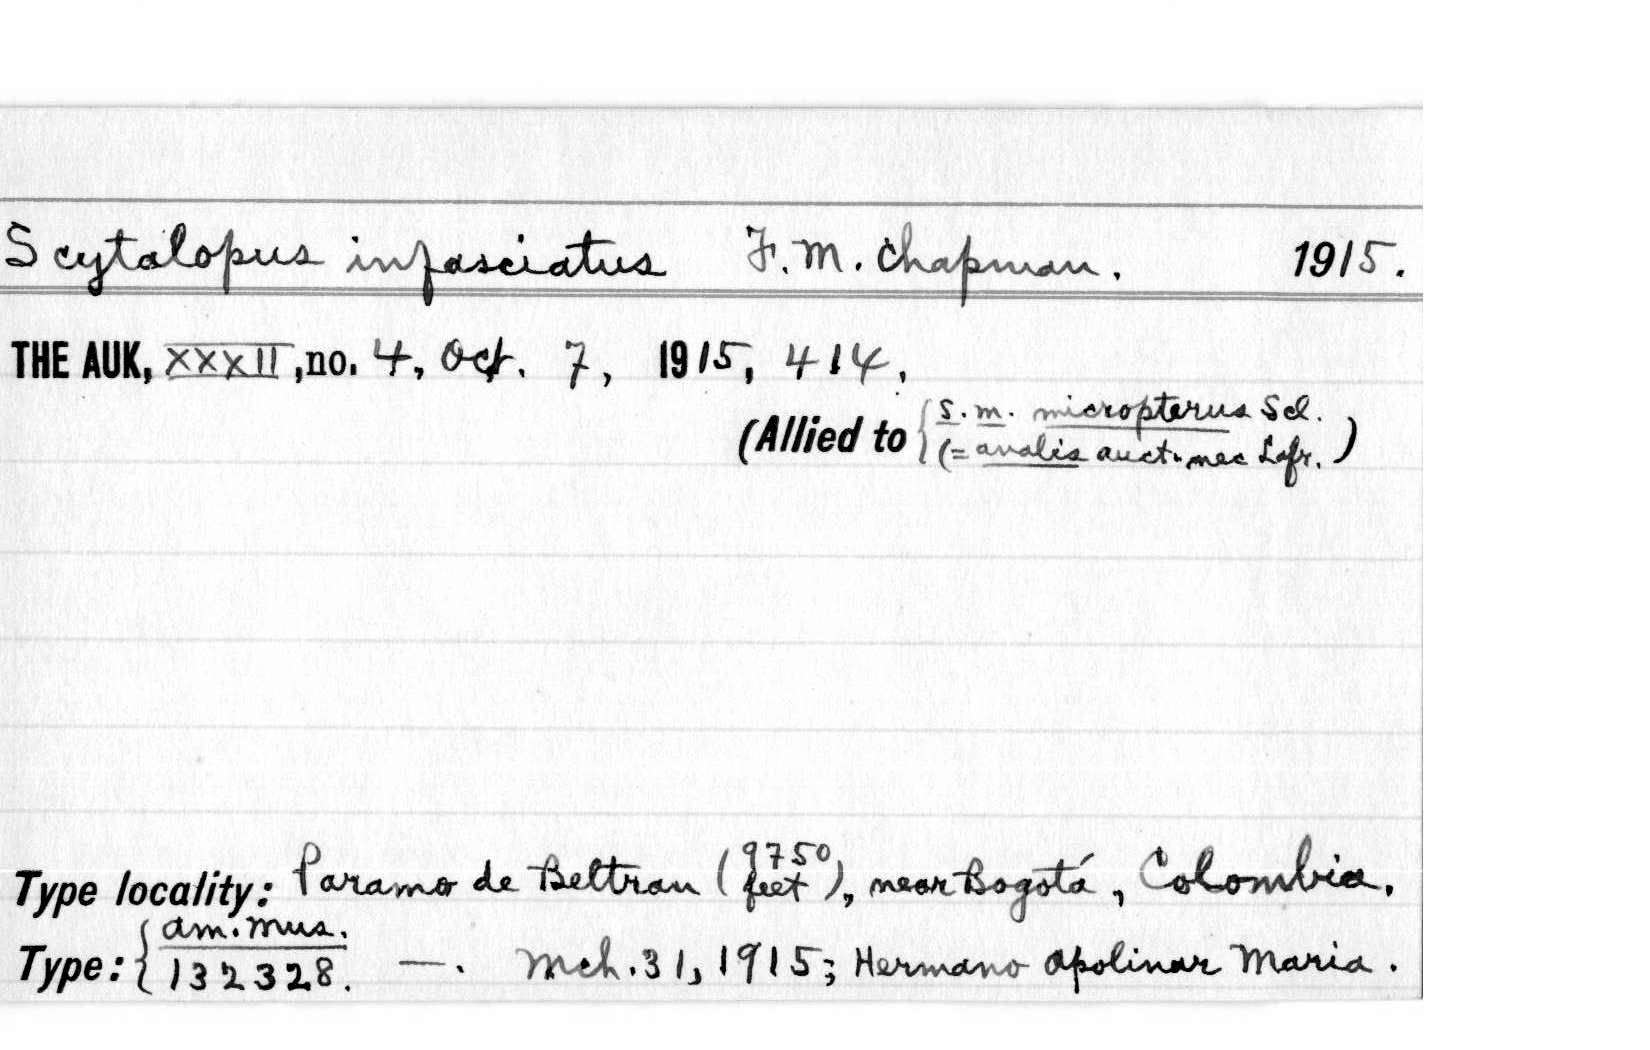 Scytalopus infasciatus F. M. Chapman. 1915.
THE AUK, XXXII, no. 4, Oct. 7, 1915, 414.
(Allied to { S. m. micropterus Scl.
(= analis auct. nec Lafr. )
Type locality: Paramo de Beltran (9750 feet), near Bogotá, Colombia.
Type: { Am. Mus.
132328. —. Mch. 31, 1915; Hermano Apolinar Maria.